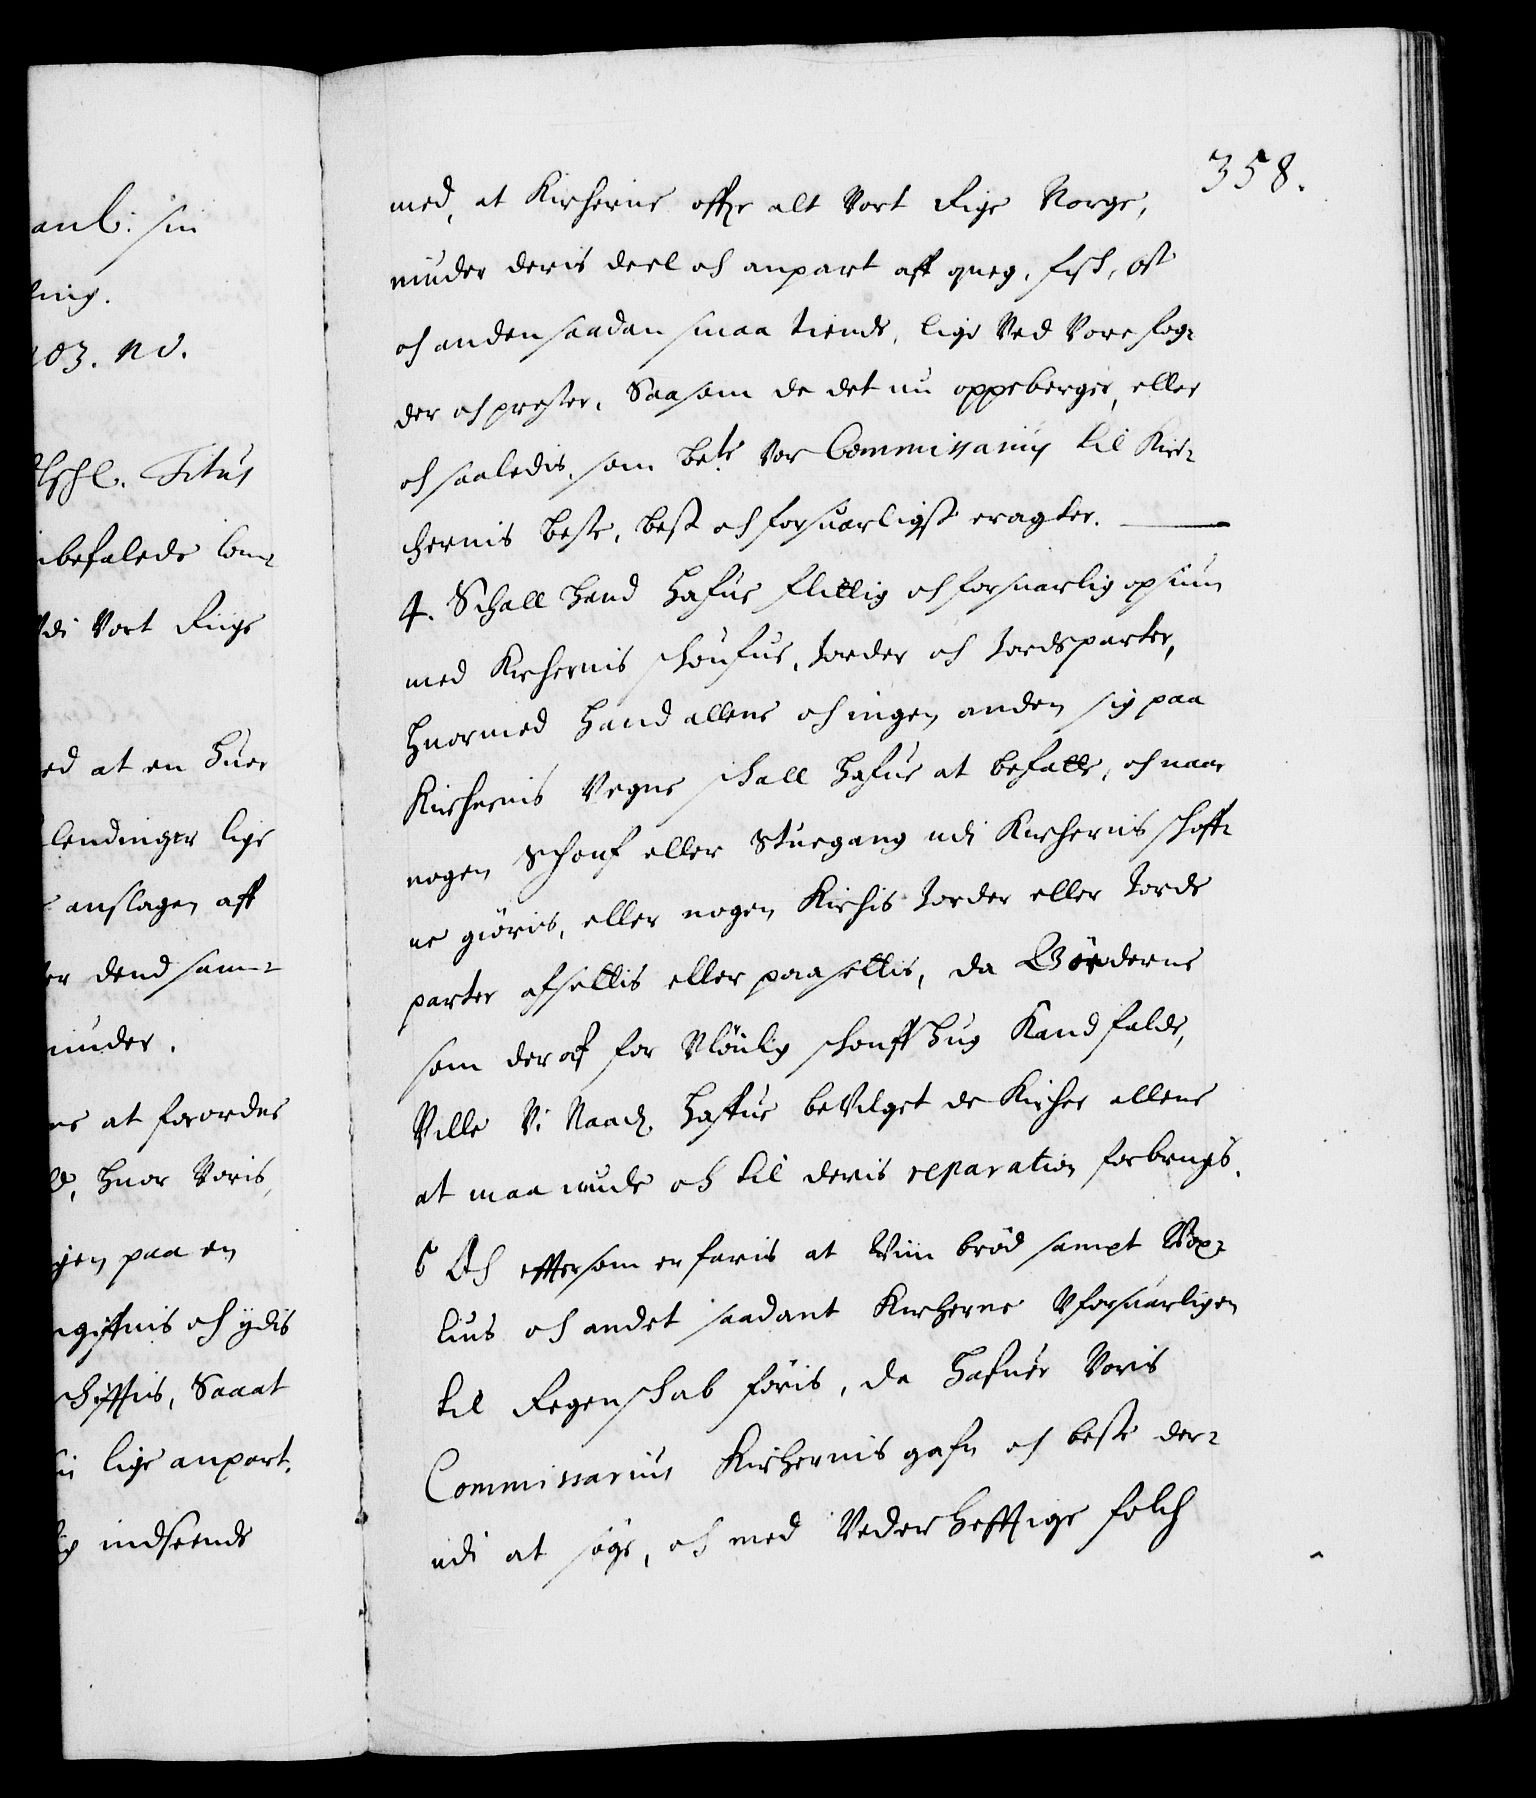 anl: sin
ling.
103. nd.
Elschl. Titus
nbefalede Com-
Udi Vort Riige
ed at en huer
lendinger lige
anslagen aff
er dend sam-
niuder.
ne at forordne
huor Voris
gen paa en
giffuis och ydis
schifftis, Saaat
lige anpart.
indseende
358.
med, at Kircherne offr alt Vort Rige Norge,
niuder deris deel och anpart aff queg, fisch, ost
och anden saadan smaa tiende, lige Ved Vore fog-
der och prester, Saasom de det nu oppeberger, eller
och saaledis, som bete Vor Commissarius til Kir-
chernis beste, best och forsuarligst eragter.
4. Schall hand hafue flittig och forsuarlig opsiun
med Kirchernis schoufue, Jorder och Jordsparter,
huormed hand allene och ingen anden sig paa
Kirchernis Vegne schall hafue at befatte, och naar
nogen Schouf eller Stuegang udi Kirchernis schoff-
ue giöris, eller nogen Kirchis Jorder eller Jorde
parter afsettis eller paasettis, da Böederne
som deraf for Ulöulig schouffhug Kand falde,
Ville Vi Naadt. haffue beVilget de Kircher allene
at maa niude och til deris reparation forbrugis.
5 Och effttersom erfaris at Viin bröd sampt Vox-
lius och andet saadant Kircherne Uforsuarligen
til Regenschab föris, da hafuer Voris
Commissarius Kirchernis gafn och beste der-
udi at söge, och med Vederhefftige folch